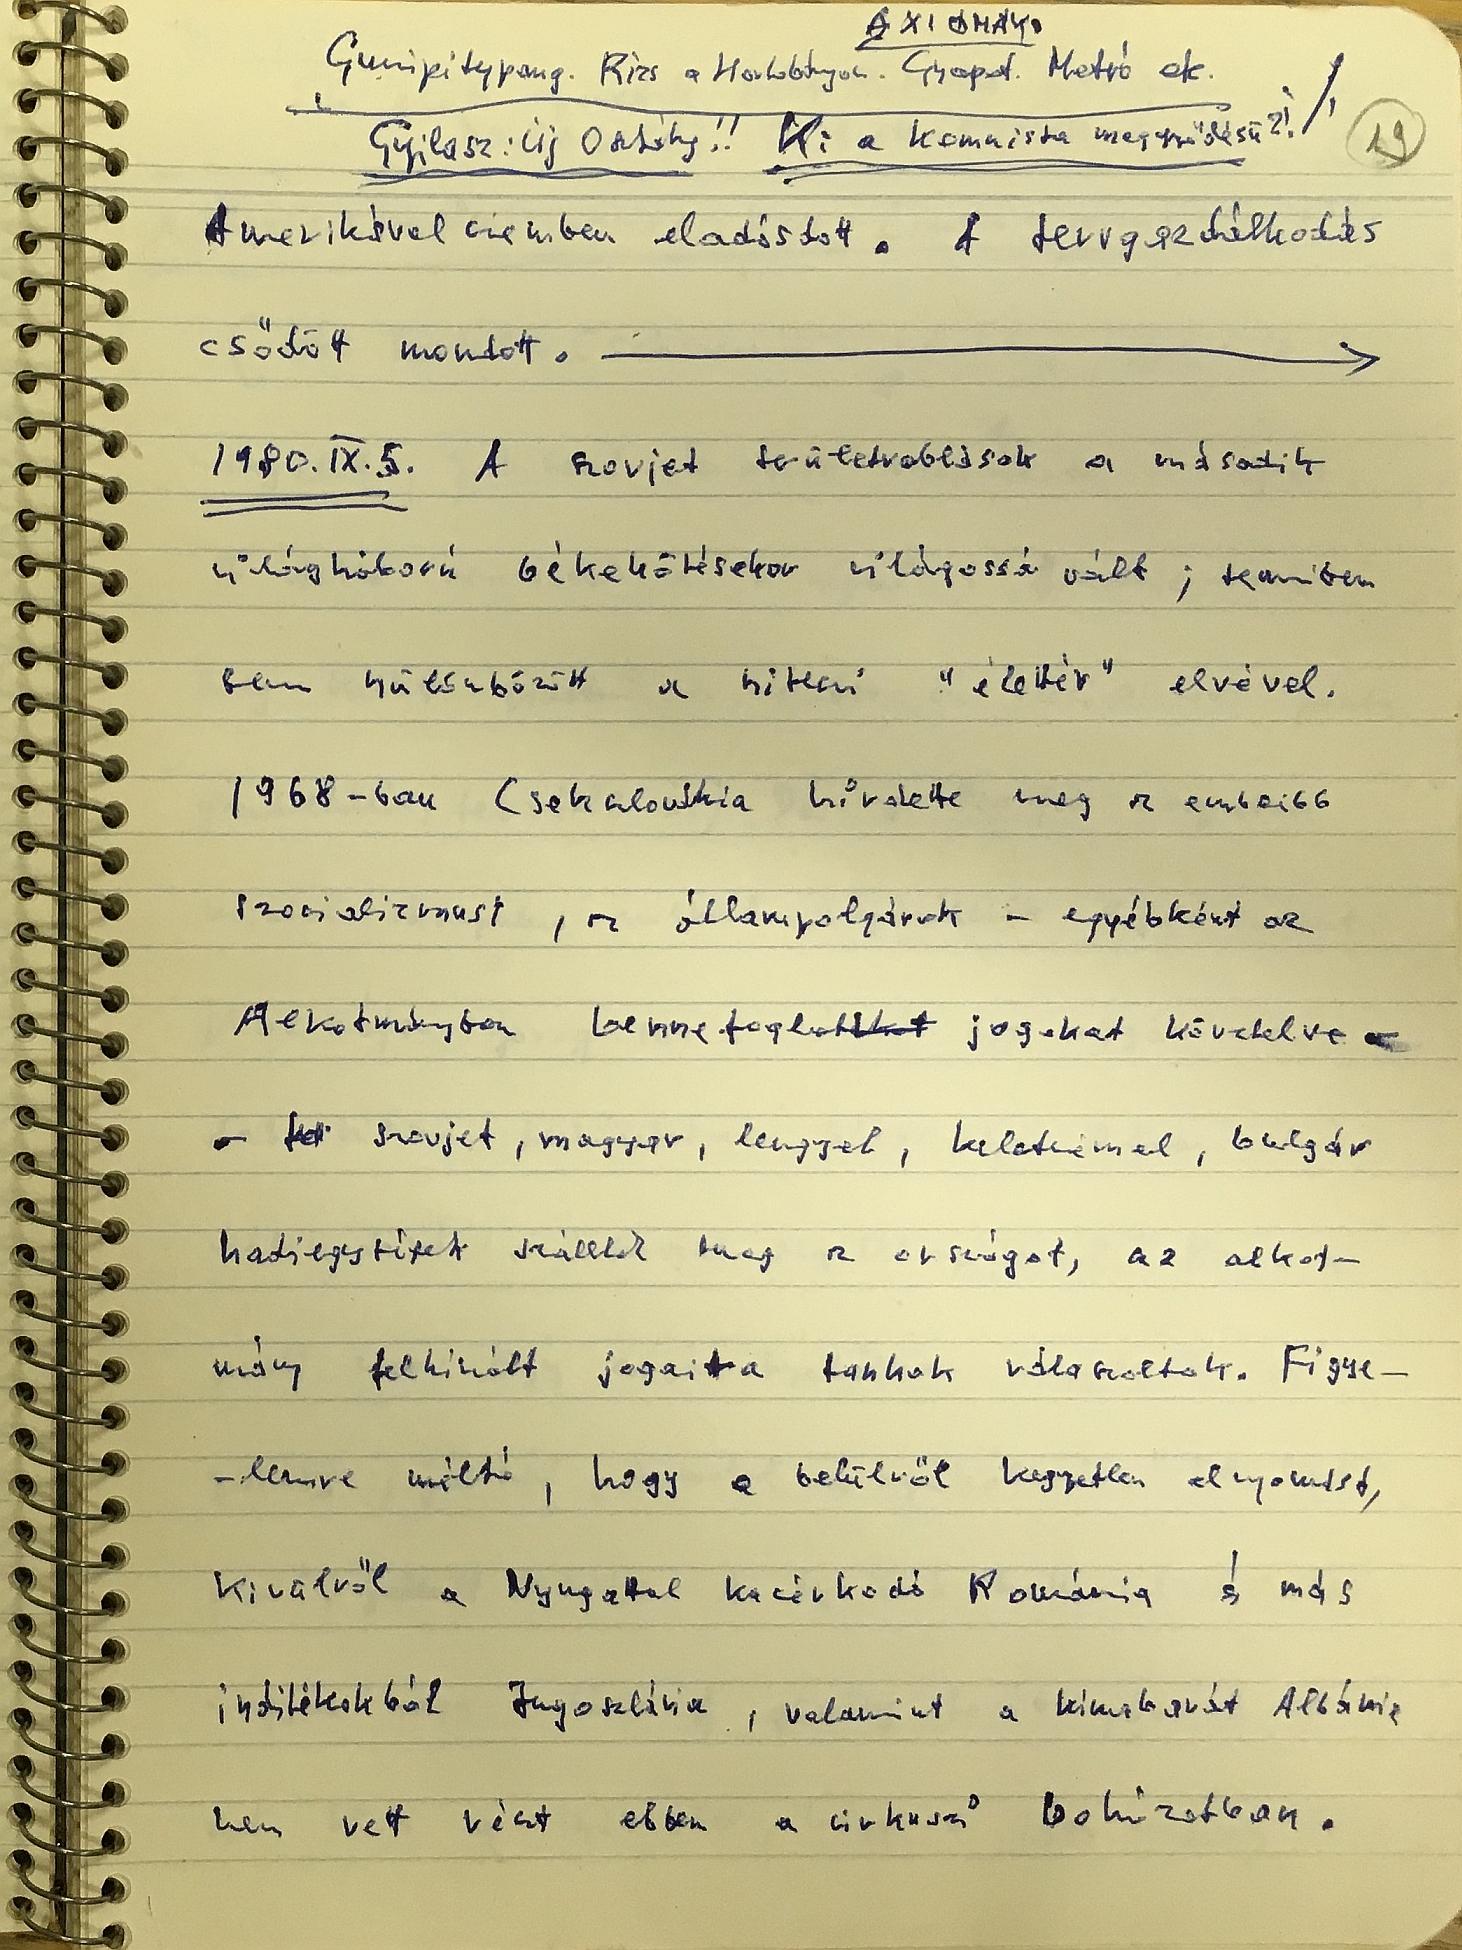 AXIOMÁK.
Gumipitypang. Rizs a Hortobágyon. Gyapot. Metró ek.
Gyilasz: Új Osztály!! Ki a komunista meggyőződésű?!
19
Amerikával szemben eladósdott. A tervgazdálkodás
csődött mondott.
1980. IX. 5. A szovjet területrablások a második
világháború békekötésekor világossá vált; semmiben
sem különbözött a hitleri "élettér" elvével.
1968-ban Csekszlovákia hírdette meg az emberibb
szocializmust, az állampolgárok - egyébként az
Alkotmányban bennefoglalt jogokat követelve
- szovjet, magyar, lengyel, keletnémet, bulgár
hadiegységek szállták meg az országot, az alkot-
mány felkínált jogaira tankok válaszoltak. Figye-
-lemre méltó, hogy a belülről kegyetlen elnyomást,
kívülről a Nyugattal kacérkodó Románia és más
indítékokból Jugoszlávia, valamint a kínabarát Albánia
nem vett részt ebben a cirkuszi bohózatban.